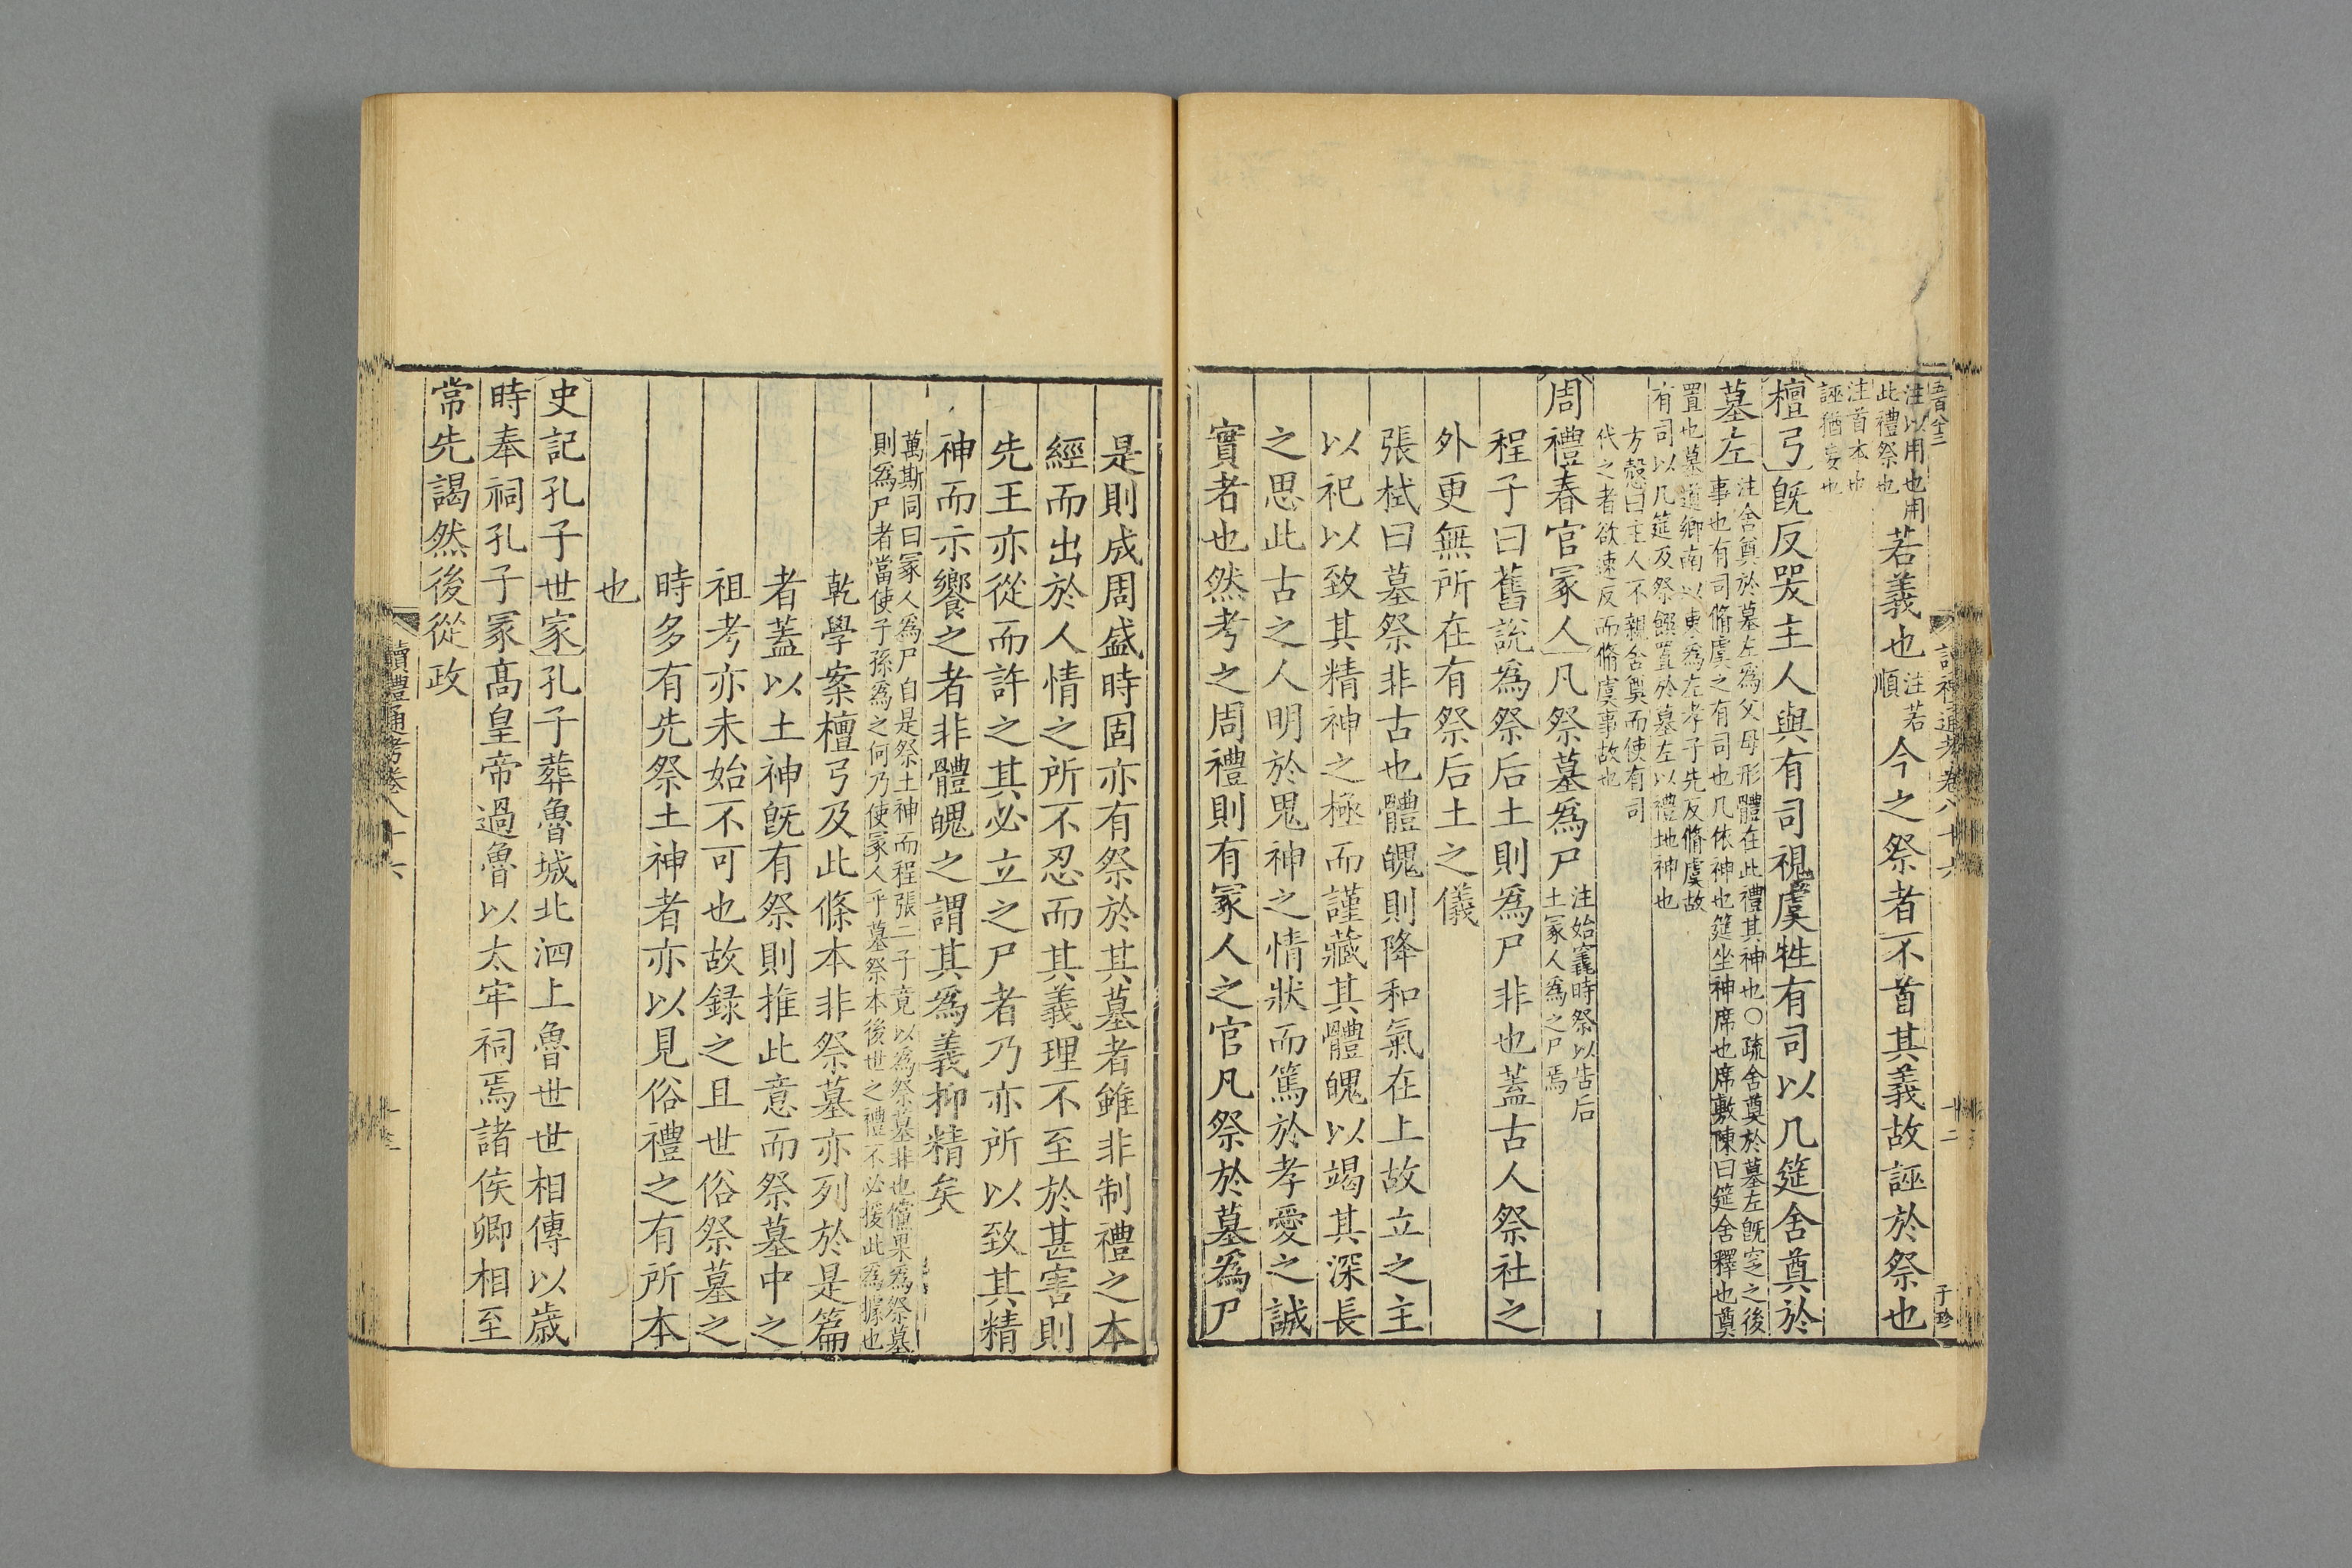 五百八十三
讀禮通考卷八十六
十二
于珍
注以用也用
此禮祭也
若義也
注若
順
今之祭者不首其義故誣於祭也
注首本也
誣猶妄也
檀弓既反哭主人與有司視虞牲有司以几筵舍奠於
墓左
注舍奠於墓左爲父母形體在此禮其神也〇疏舍奠於墓左既窆之後
事也有司脩虞之有司也几依神也筵坐神席也席敷陳曰筵舍釋也奠
置也墓道鄉南以東爲左孝子先反脩虞故
有司以几筵及祭饌置於墓左以禮地神也
方慤曰主人不親舍奠而使有司
代之者欲速反而脩虞事故也
周禮春官冢人凡祭墓爲尸
注始竁時祭以告后
土冢人爲之尸焉
程子曰舊說爲祭后土則爲尸非也蓋古人祭社之
外更無所在有祭后土之儀
張栻曰墓祭非古也體魄則降和氣在上故立之主
以祀以致其精神之極而謹藏其體魄以竭其深長
之思此古之人明於鬼神之情狀而篤於孝愛之誠
實者也然考之周禮則有冢人之官凡祭於墓爲尸
是則成周盛時固亦有祭於其墓者雖非制禮之本
經而出於人情之所不忍而其義理不至於甚害則
先王亦從而許之其必立之尸者乃亦所以致其精
神而示饗之者非體魄之謂其爲義抑精矣
萬斯同曰冢人爲尸自是祭土神而程張二子竟以爲祭墓非也儻果爲祭墓
則爲尸者當使子孫爲之何乃使冢人乎墓祭本後世之禮不必援此爲據也
乾學案檀弓及此條本非祭墓亦列於是篇
者蓋以土神既有祭則推此意而祭墓中之
祖考亦未始不可也故録之且世俗祭墓之
時多有先祭土神者亦以見俗禮之有所本
也
史記孔子世家孔子葬魯城北泗上魯世世相傳以歲
時奉祠孔子冢高皇帝過魯以太牢祠焉諸侯卿相至
常先謁然後從政
讀禮通考卷八十六